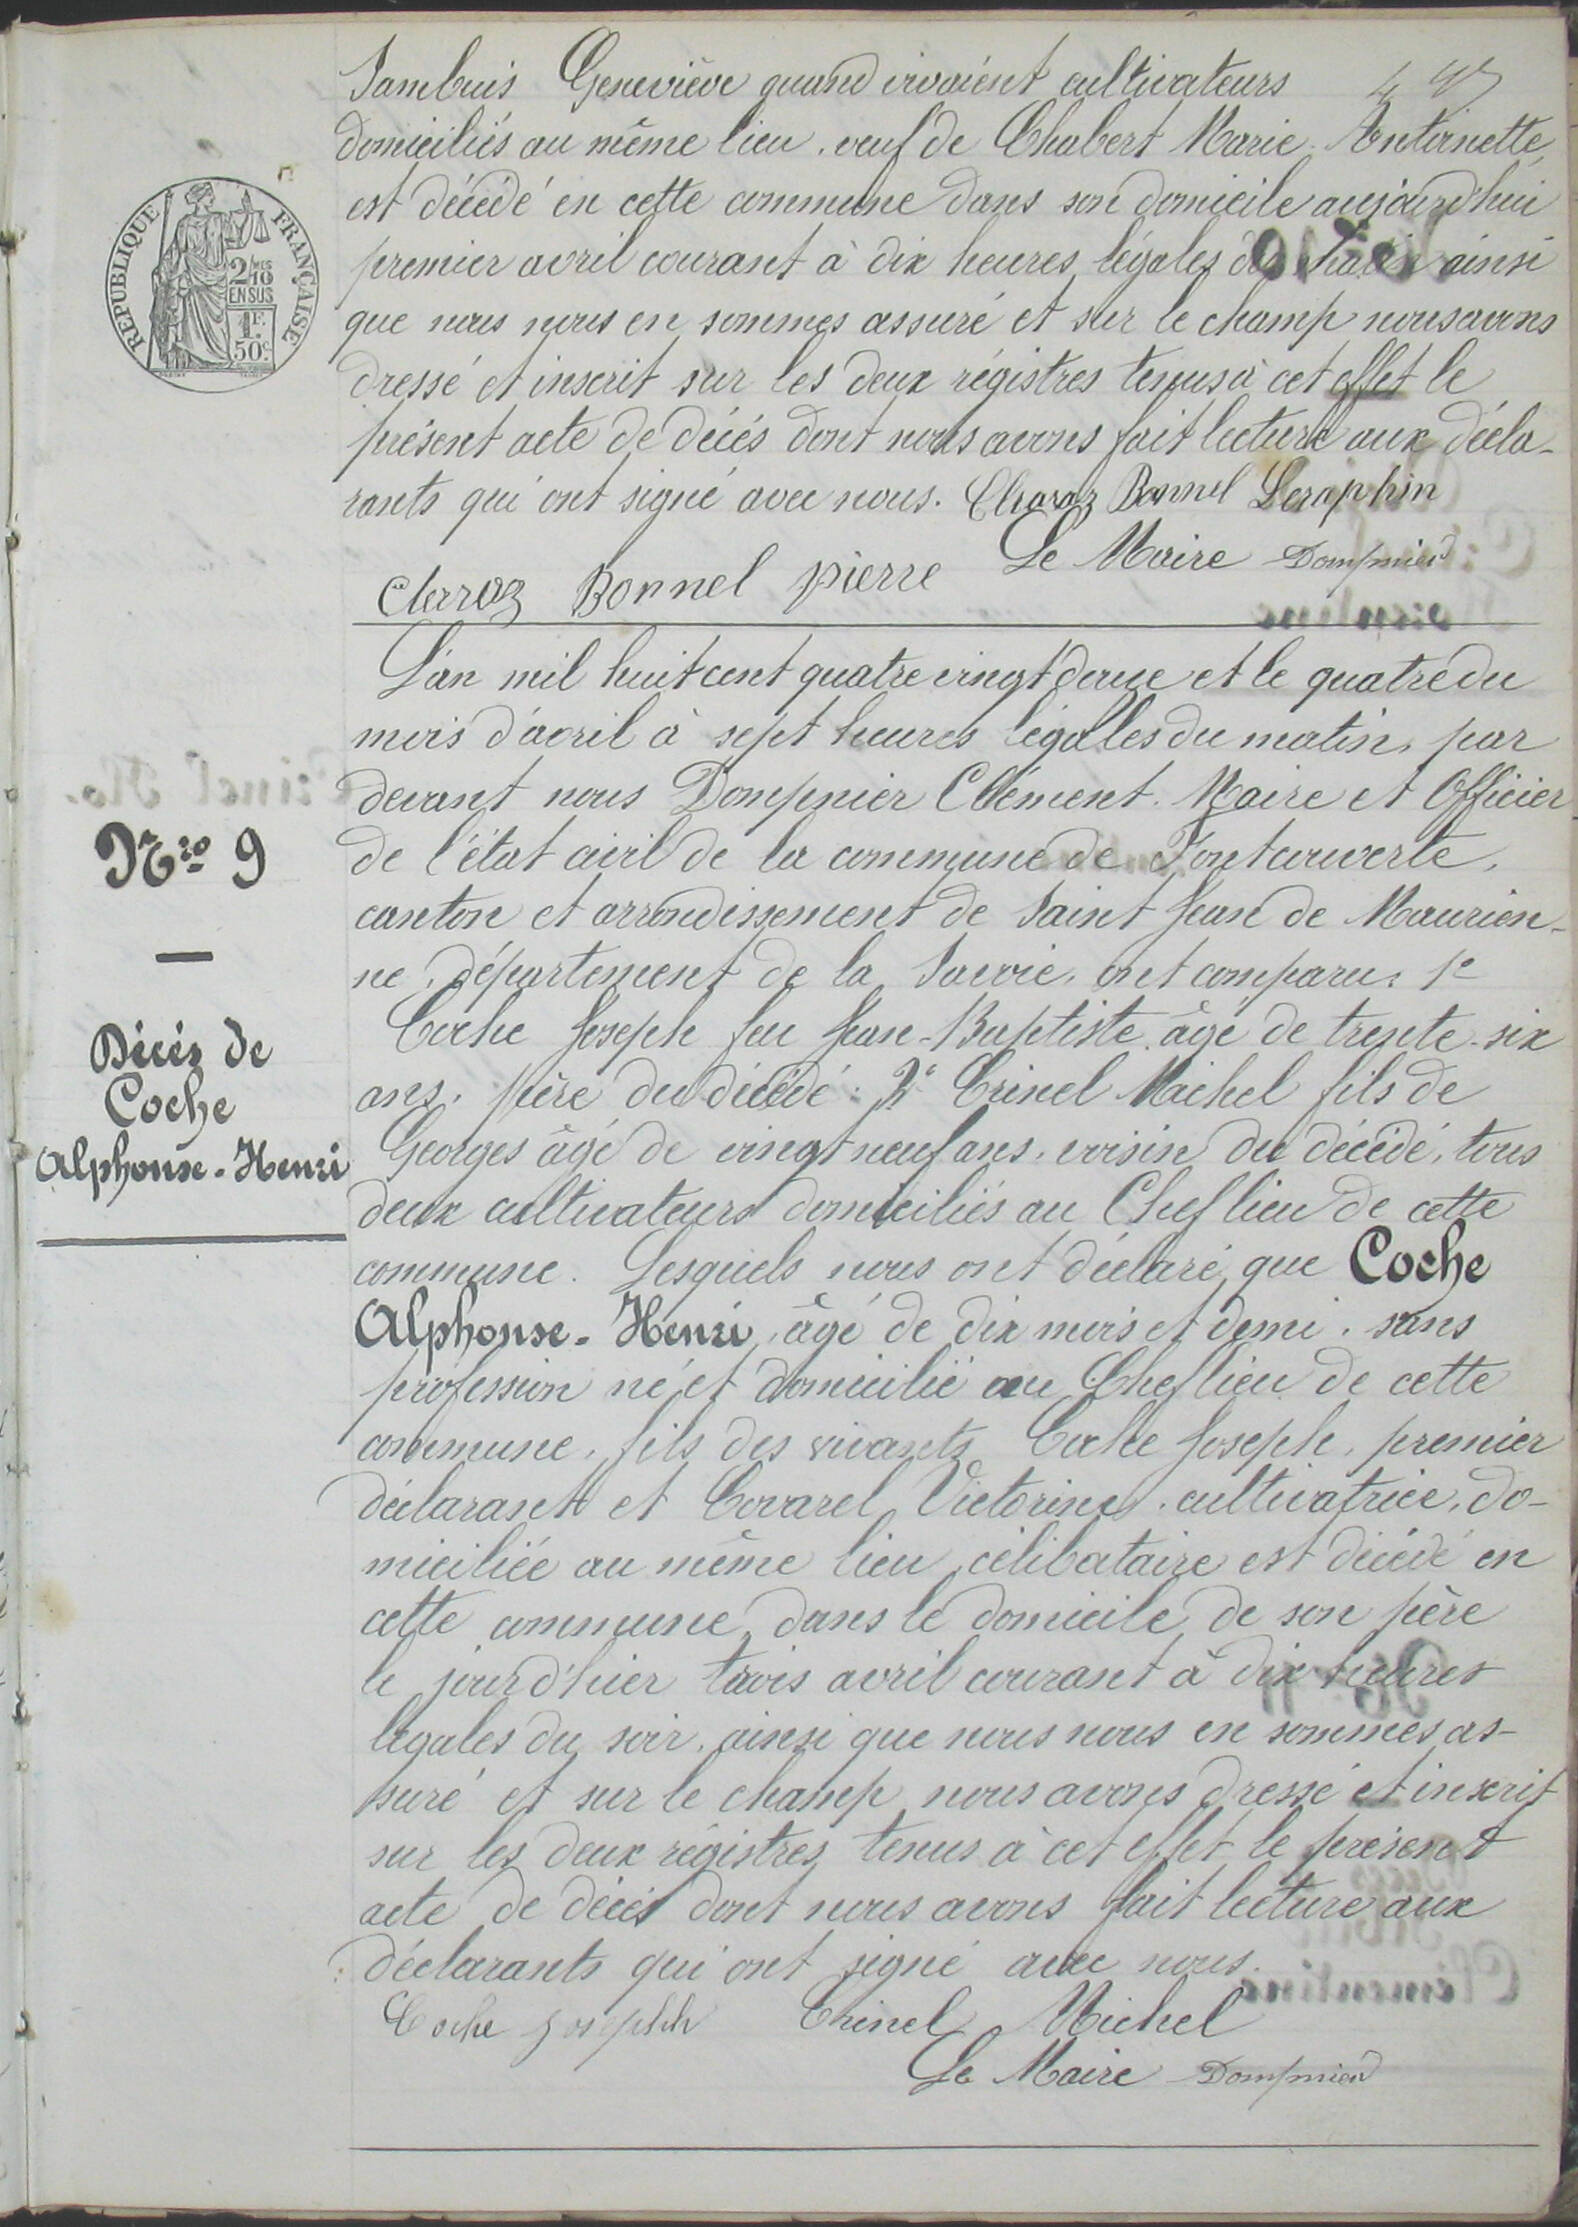 Sambuis Geneviève quand vivaient cultivateurs
domiciliés au même lieu. veuf de Chabert Marie-Antoinette,
est décédé en cette commune dans son domicile aujourd'hui
premier avril courant à dix heures légales du ainsi
que nous nous en sommes assuré et sur le champ nous avons
dressé et inscrit sur les deux régistres tenus à cet effet le
présent acte de décès dont nous avons fait lecture aux décla-
rants qui ont signé avec nous. Claraz Bonnel Séraphin
Le Maire Dompnier
Claraz Bonnel pierre
REPUBLIQUE FRANÇAISE
2/10MES
EN SUS
1F.
50c.
L'an mil huit cent quatre vingt douze et le quatre du
mois d'avril à sept heures légalles du matin, par
devant nous Dompnier Clément. Maire et Officier
de l'état civil de la commune de Fontcouverte,
canton et arrondissement de Saint Jean de Maurien-
ne, département de la Savoie, ont comparu: 1e
Coche Joseph feu Jean-Baptiste âgé de trente-six
ans, père du décédé: 2e Crinel Michel fils de
Georges âgé de vingt neuf ans, voisin du décédé, tous
deux cultivateurs domiciliés au Chef lieu de cette
commune. Lesquels nous ont déclaré que Coche
Alphonse-Henri, âgé de dix mois et demi. sans
profession né et domicilié au Chef lieu de cette
commune, fils des vivants Coche Joseph, premier
déclarant et Covarel Victorine, cultivatrice, do-
miciliée au même lieu, célibataire est décédé en
cette commune, dans le domicile de son père
le jour d'hier trois avril courant à dix heures
légales du soir, ainsi que nous nous en sommes as-
suré et sur le champ nous avons dressé et inscrit
sur les deux régistres tenus à cet effet le présent
acte de décès dont nous avons fait lecture aux
déclarants qui ont signé avec nous.
Coche Josephh Crinel Michel
Le Maire Dompnier
Nro 9
Décès de
Coche
Alphonse-Henri